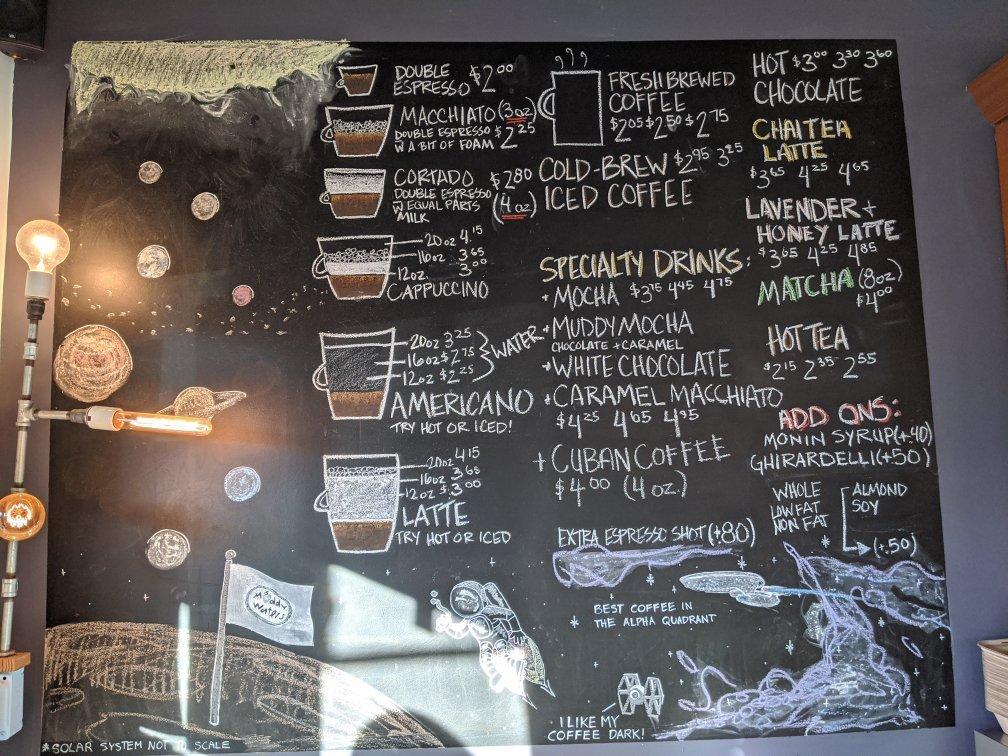 DOUBLE
ESPRESSO $2.00
MACCHIATO (3oz)
DOUBLE ESPRESSO $2.25
W A BIT OF FOAM
CORTADO $2.80
DOUBLE ESPRESSO
W EQUAL PARTS (4 oz)
MILK
20oz 4.15
16oz 3.65
12oz 3.00
CAPPUCCINO
20oz 3.25
16oz $2.75
12oz $2.25
WATER
AMERICANO
TRY HOT OR ICED!
20oz 4.15
16oz 3.65
12oz $3.00
LATTE
TRY HOT OR ICED
FRESH BREWED
COFFEE
$2.05 $2.50 $2.75
COLD-BREW $2.95 3.25
ICED COFFEE
SPECIALTY DRINKS:
MOCHA $3.75 4.45 4.75
MUDDY MOCHA
CHOCOLATE + CARAMEL
WHITE CHOCOLATE
CARAMEL MACCHIATO
$4.25 4.65 4.95
+ CUBAN COFFEE
$4.00 (4 oz.)
EXTRA ESPRESSO SHOT (+.80)
HOT $3.00 3.30 3.60
CHOCOLATE
CHAI TEA
LATTE
$3.65 4.25 4.65
LAVENDER +
HONEY LATTE
$3.65 4.25 4.85
MATCHA (8oz)
$4.00
HOT TEA
$2.15 2.35 2.55
ADD ONS:
MONIN SYRUP (+.40)
GHIRARDELLI (+.50)
WHOLE
LOWFAT
NON FAT
ALMOND
SOY
(+.50)
Muddy
Waters
BEST COFFEE IN
* THE ALPHA QUADRANT
I LIKE MY
COFFEE DARK!
*SOLAR SYSTEM NOT TO SCALE